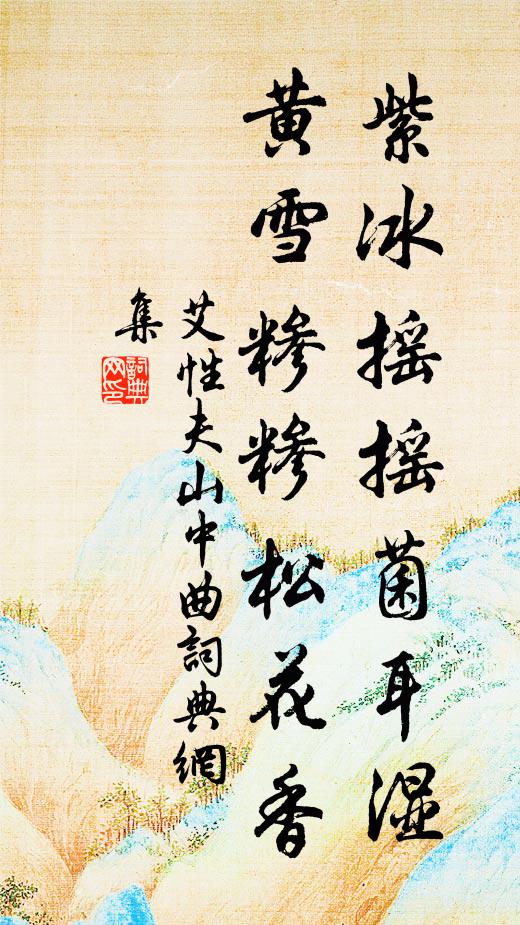 紫冰摇摇菌耳湿
黄雪糁糁松花香
艾性夫山中曲詞典網
集
詞典网印